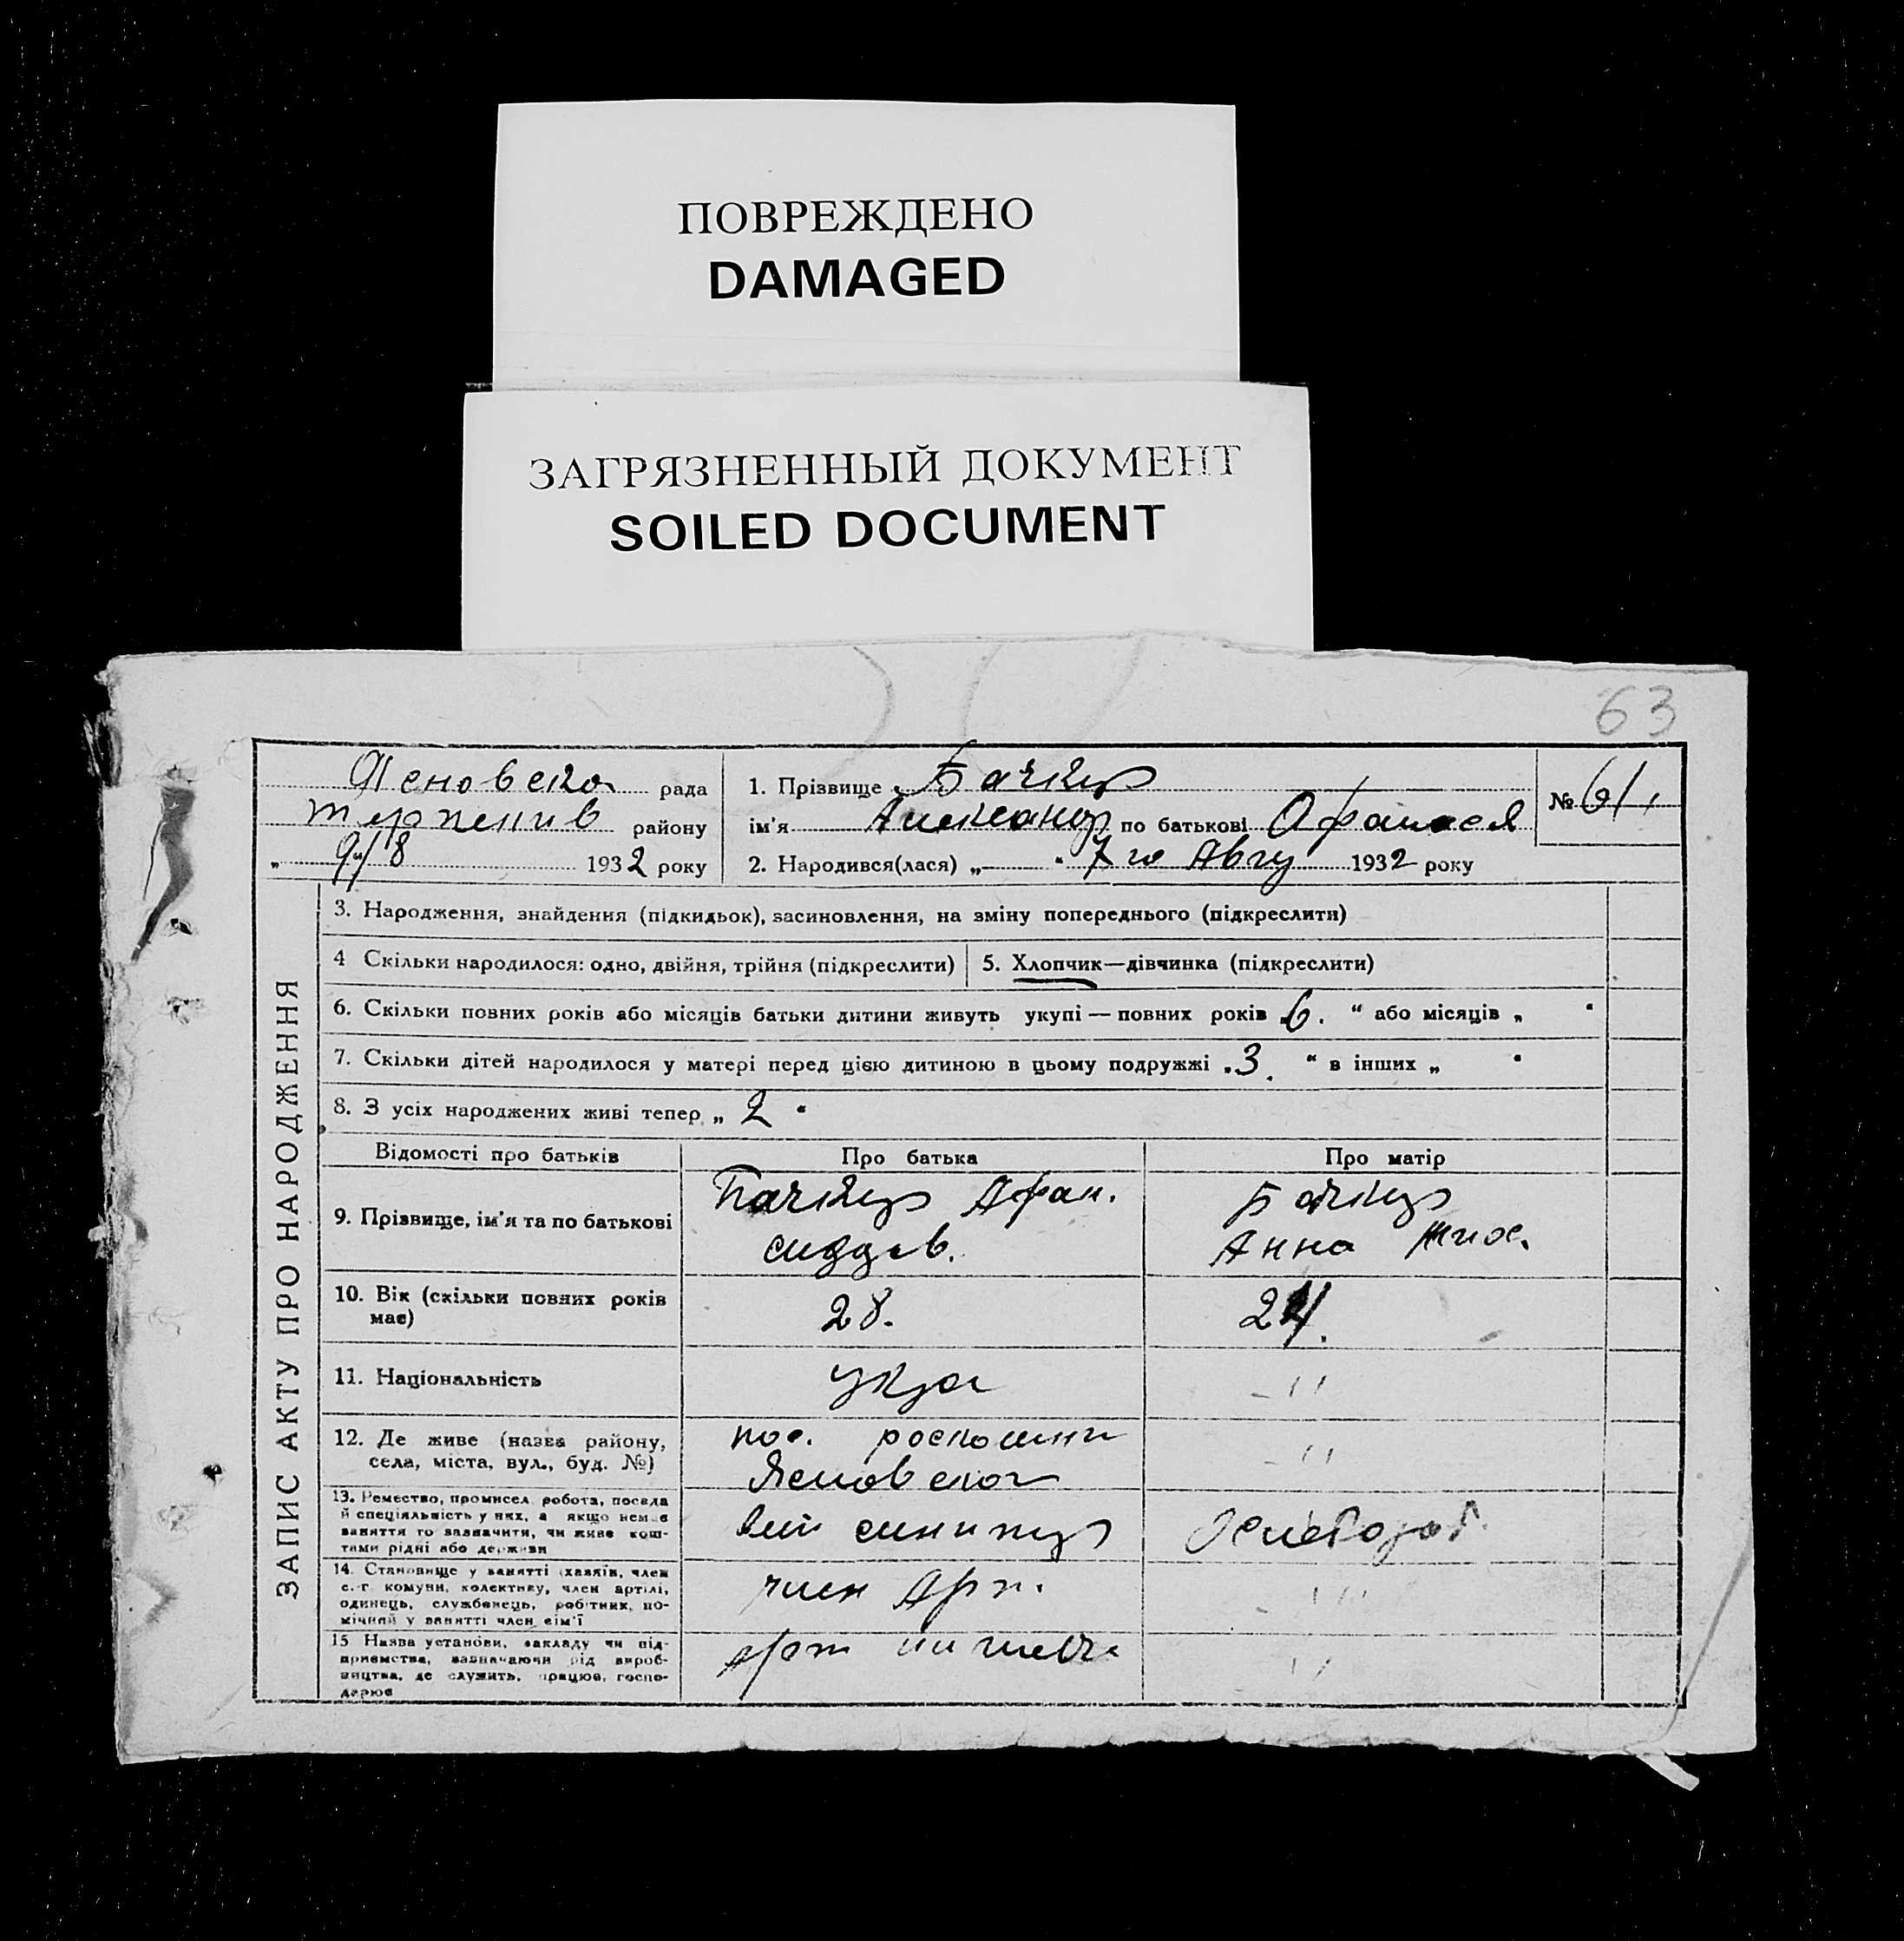 ПОВРЕЖДЕНО
DAMAGED
ЗАГРЯЗНЕННЫЙ ДОКУМЕНТ
SOILED DOCUMENT
63
рада
району
„ 9/8 1932 року
1. Прізвище
№ 61
ім'я Александр по батькові Афанасея
2. Народився(лася) „ “ 7го Авгу 1932 року
ЗАПИС АКТУ ПРО НАРОДЖЕННЯ
3. Народження, знайдення (підкидьок), засиновлення, на зміну попереднього (підкреслити)
4 Скільки народилося: одно, двійня, трійня (підкреслити)
5. Хлопчик—дівчинка (підкреслити)
6. Скільки повних років або місяців батьки дитини живуть укупі — повних років „6. “ або місяців „ “
7. Скільки дітей народилося у матері перед цією дитиною в цьому подружжі „3. “ в інших „ “
8. З усіх народжених живі тепер „ 2 “
Відомості про батьків
Про батька
Про матір
9. Прізвище, ім'я та по батькові
Афан.
Анна
10. Вік (скільки повних років
має)
28.
24.
11. Національність
укра
- ''
12. Де живе (назва району,
села, міста, вул., буд. №)
пос.
- ''
13. Ремество, промисел, робота, посада
й спеціяльність у них, а якщо немає
заняття то зазначити, чи живе кош-
тами рідні або держави
14. Становище у занятті (хазяїн, член
с.-г. комуни, колективу, член артілі,
одинець, службовець, робітник, по-
мічний у занятті член сім'ї
член Арт.
- '''
15. Назва установи, закладу чи під-
приємства, зазначаючи рід вироб-
ництва, де служить, працює, госпо-
дарює
арт
''